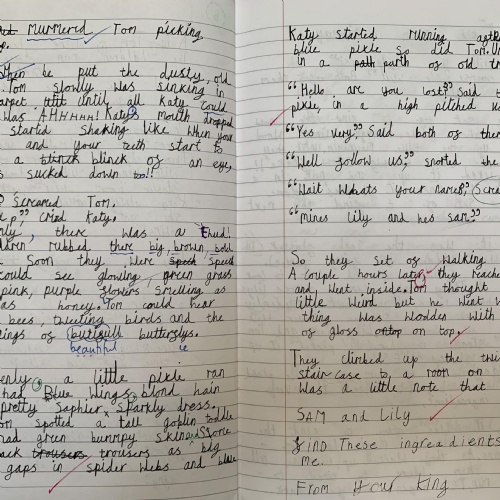 Murmered Tom picking
Then he put the dusty, old
Tom slowly was sinking in
carpet until all Katy could
was AHHHHH! Katy's mouth dropped
started shaking like when you
and your teeth start to
a blinck of an eye,
s sucked down !!
? screamed Tom.
p" cried Katy.
nly, there was a Thud!
ldren rubbed there big, brown, bold
Soon they were
could see glowing, green grass
pink, purple flowers smelling as
as honey. Tom could hear
bees, tweeting birds and the
ings of butiifull butterflys.
beautiful ie
enly, a little pixie ran
had Blue wings, blond hair
pretty Saphier, sparkly dress.
om spotted a tall goblin
had green bunmpy skin. Stone
ack trousers trousers as big
gaps in spider webs and blue
Katy started running
blue pixie so did Tom.
in a path of old
"Hello, are you lost?" said
pixie, in a high pitched
"Yes very," Said both of
"Well follow us," snorted she
"Wait Whats your names,"
"mines Lily and hes sam."
So they set of walking
A couple hours later they reache
and went inside. Tom thought
little weird but he went
thing was Wooden with
of gloss on top.
They climbed up the
staircase to a room on
was a little note that
SAM and Lily
FIND These ingredients
me.
From Your King